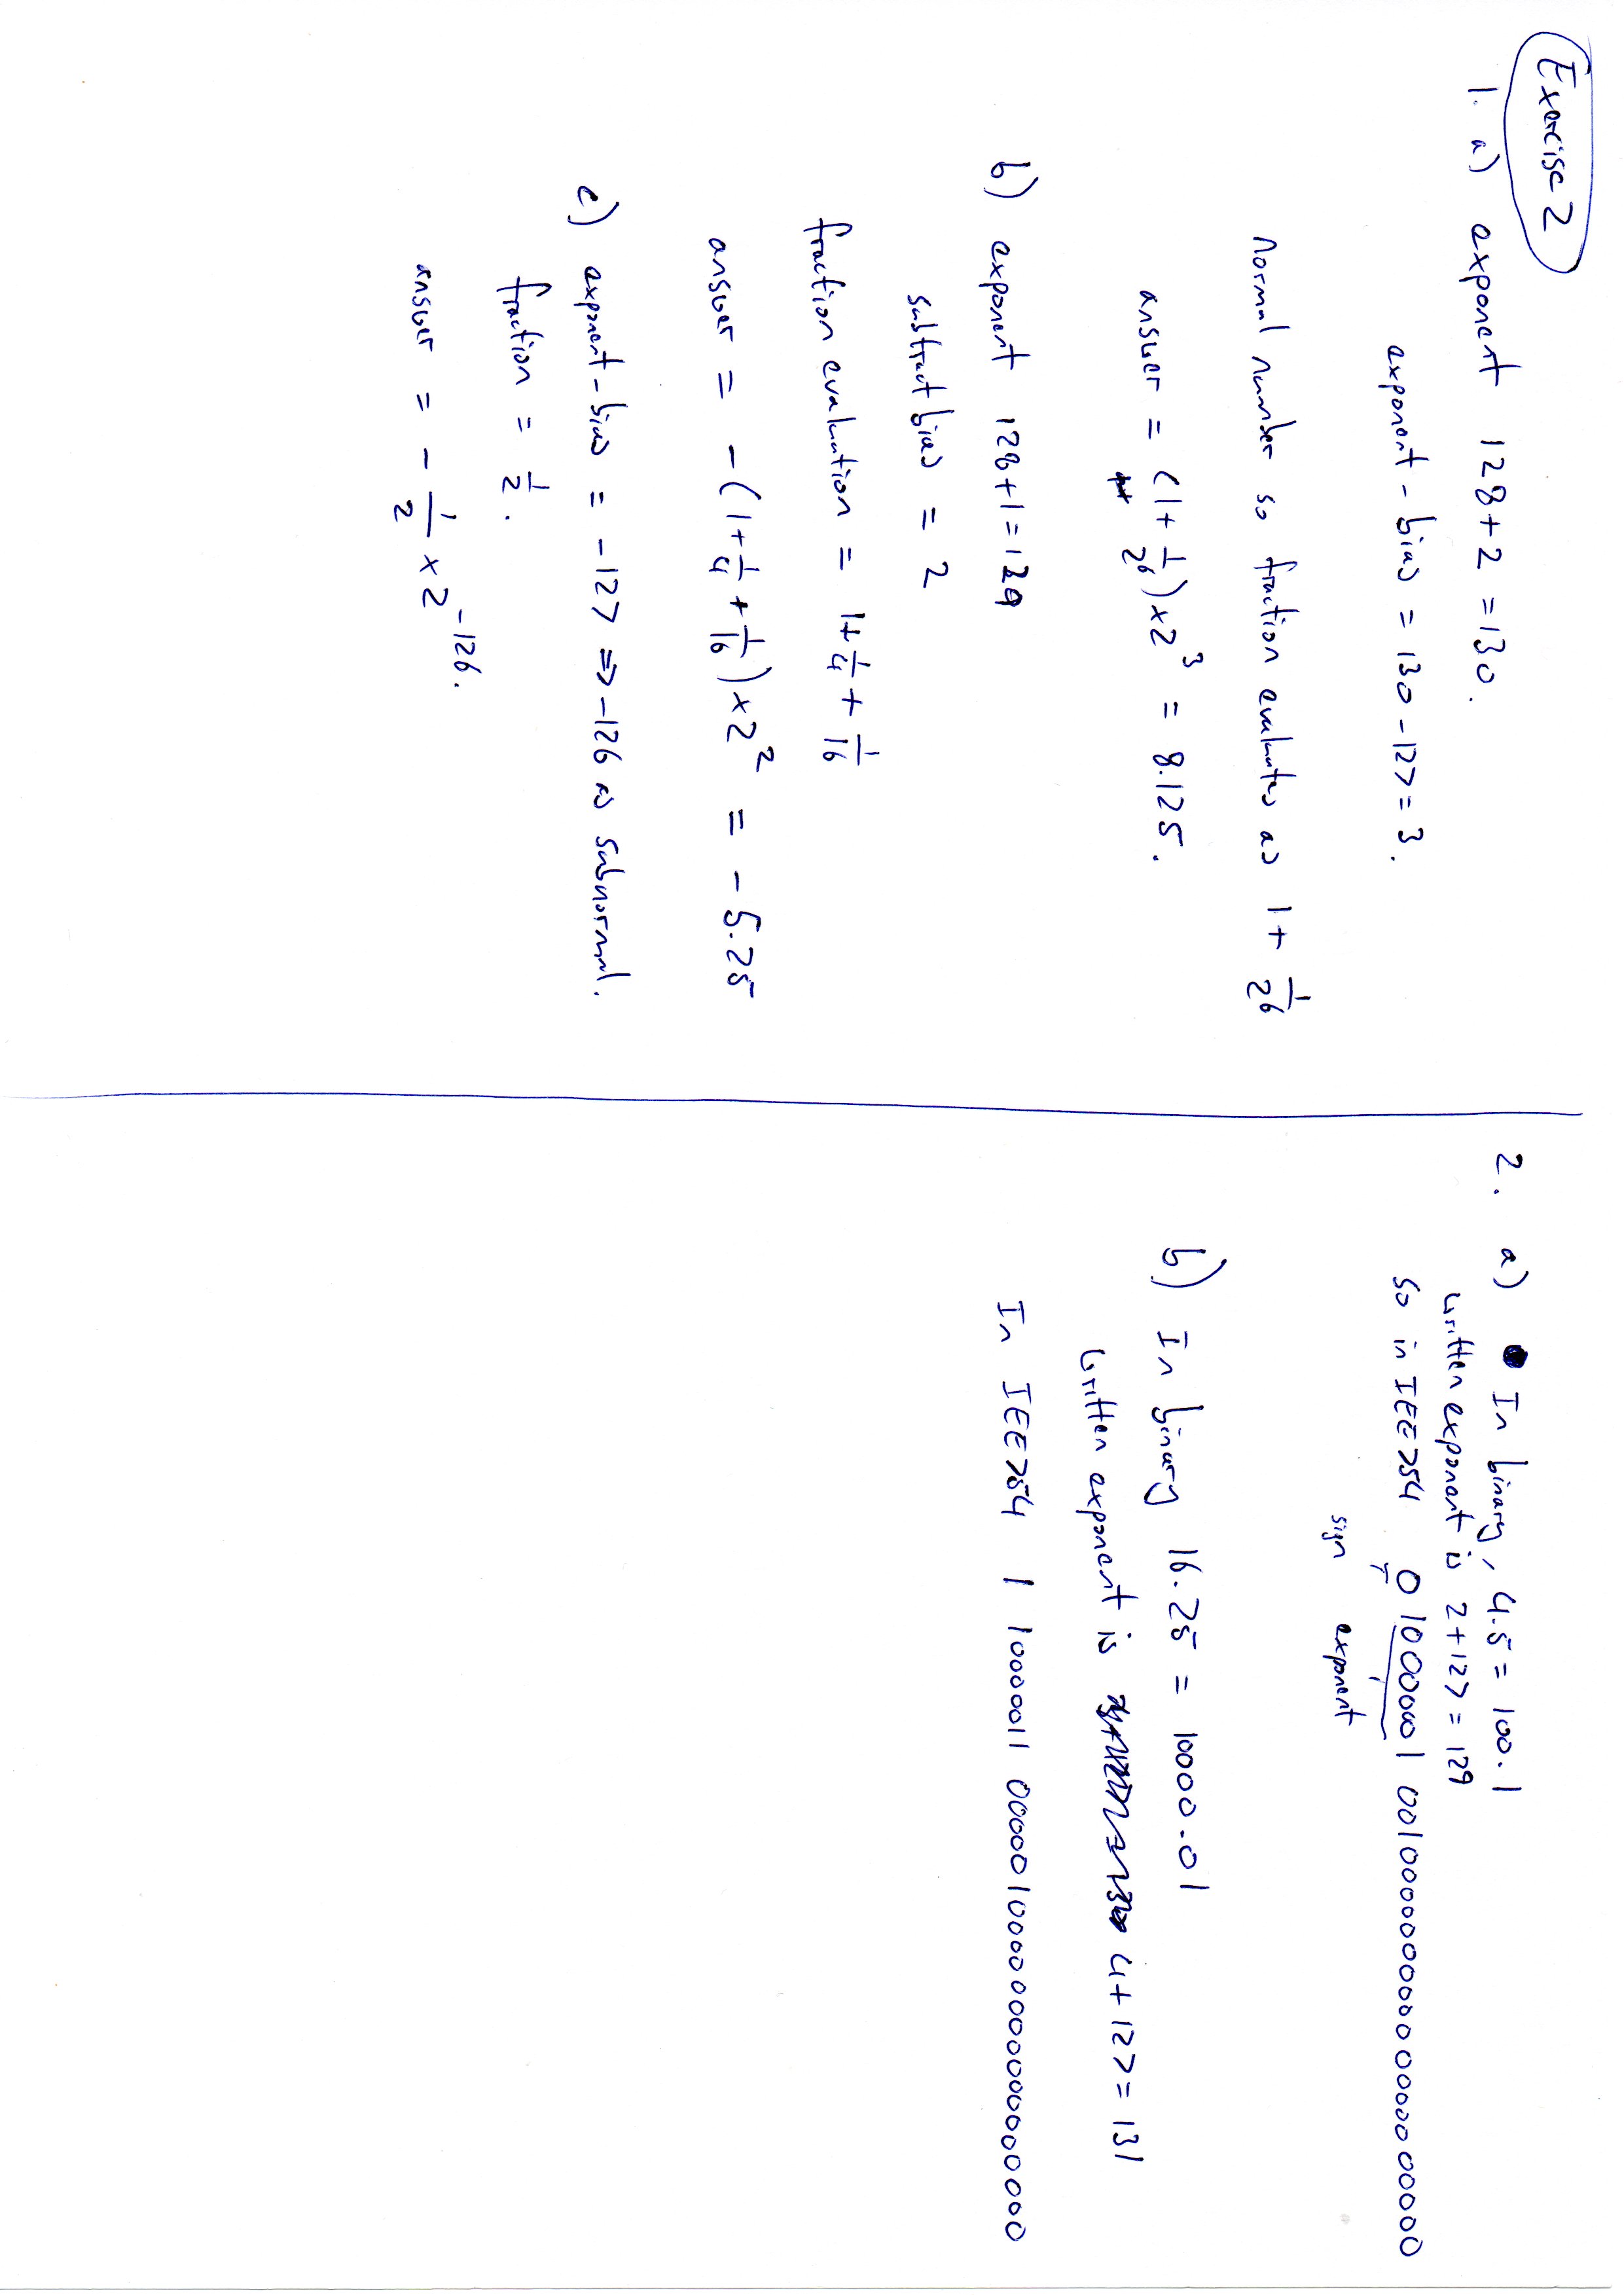 Exercise 2
1. a) exponent 128+2 = 130.
exponent - bias = 130 - 127 = 3.
normal number so fraction evaluates as 1 + 1/2^6
answer = (1 + 1/2^6) × 2^3 = 8.125.
b) exponent 128+1 = 129
subtract bias = 2
fraction evaluation = 1 + 1/4 + 1/16
answer = -(1 + 1/4 + 1/16) × 2^2 = -5.25
c) exponent - bias = -127 => -126 as subnormal.
fraction = 1/2.
answer = - 1/2 × 2^-126.
2. a) In binary, 4.5 = 100.1
written exponent is 2+127 = 129
So in IEE754 0 10000001 00100000000000000000000
sign exponent
b) In binary 16.25 = 10000.01
written exponent is 4+127 = 131
In IEE754 1 10000011 00000100000000000000000